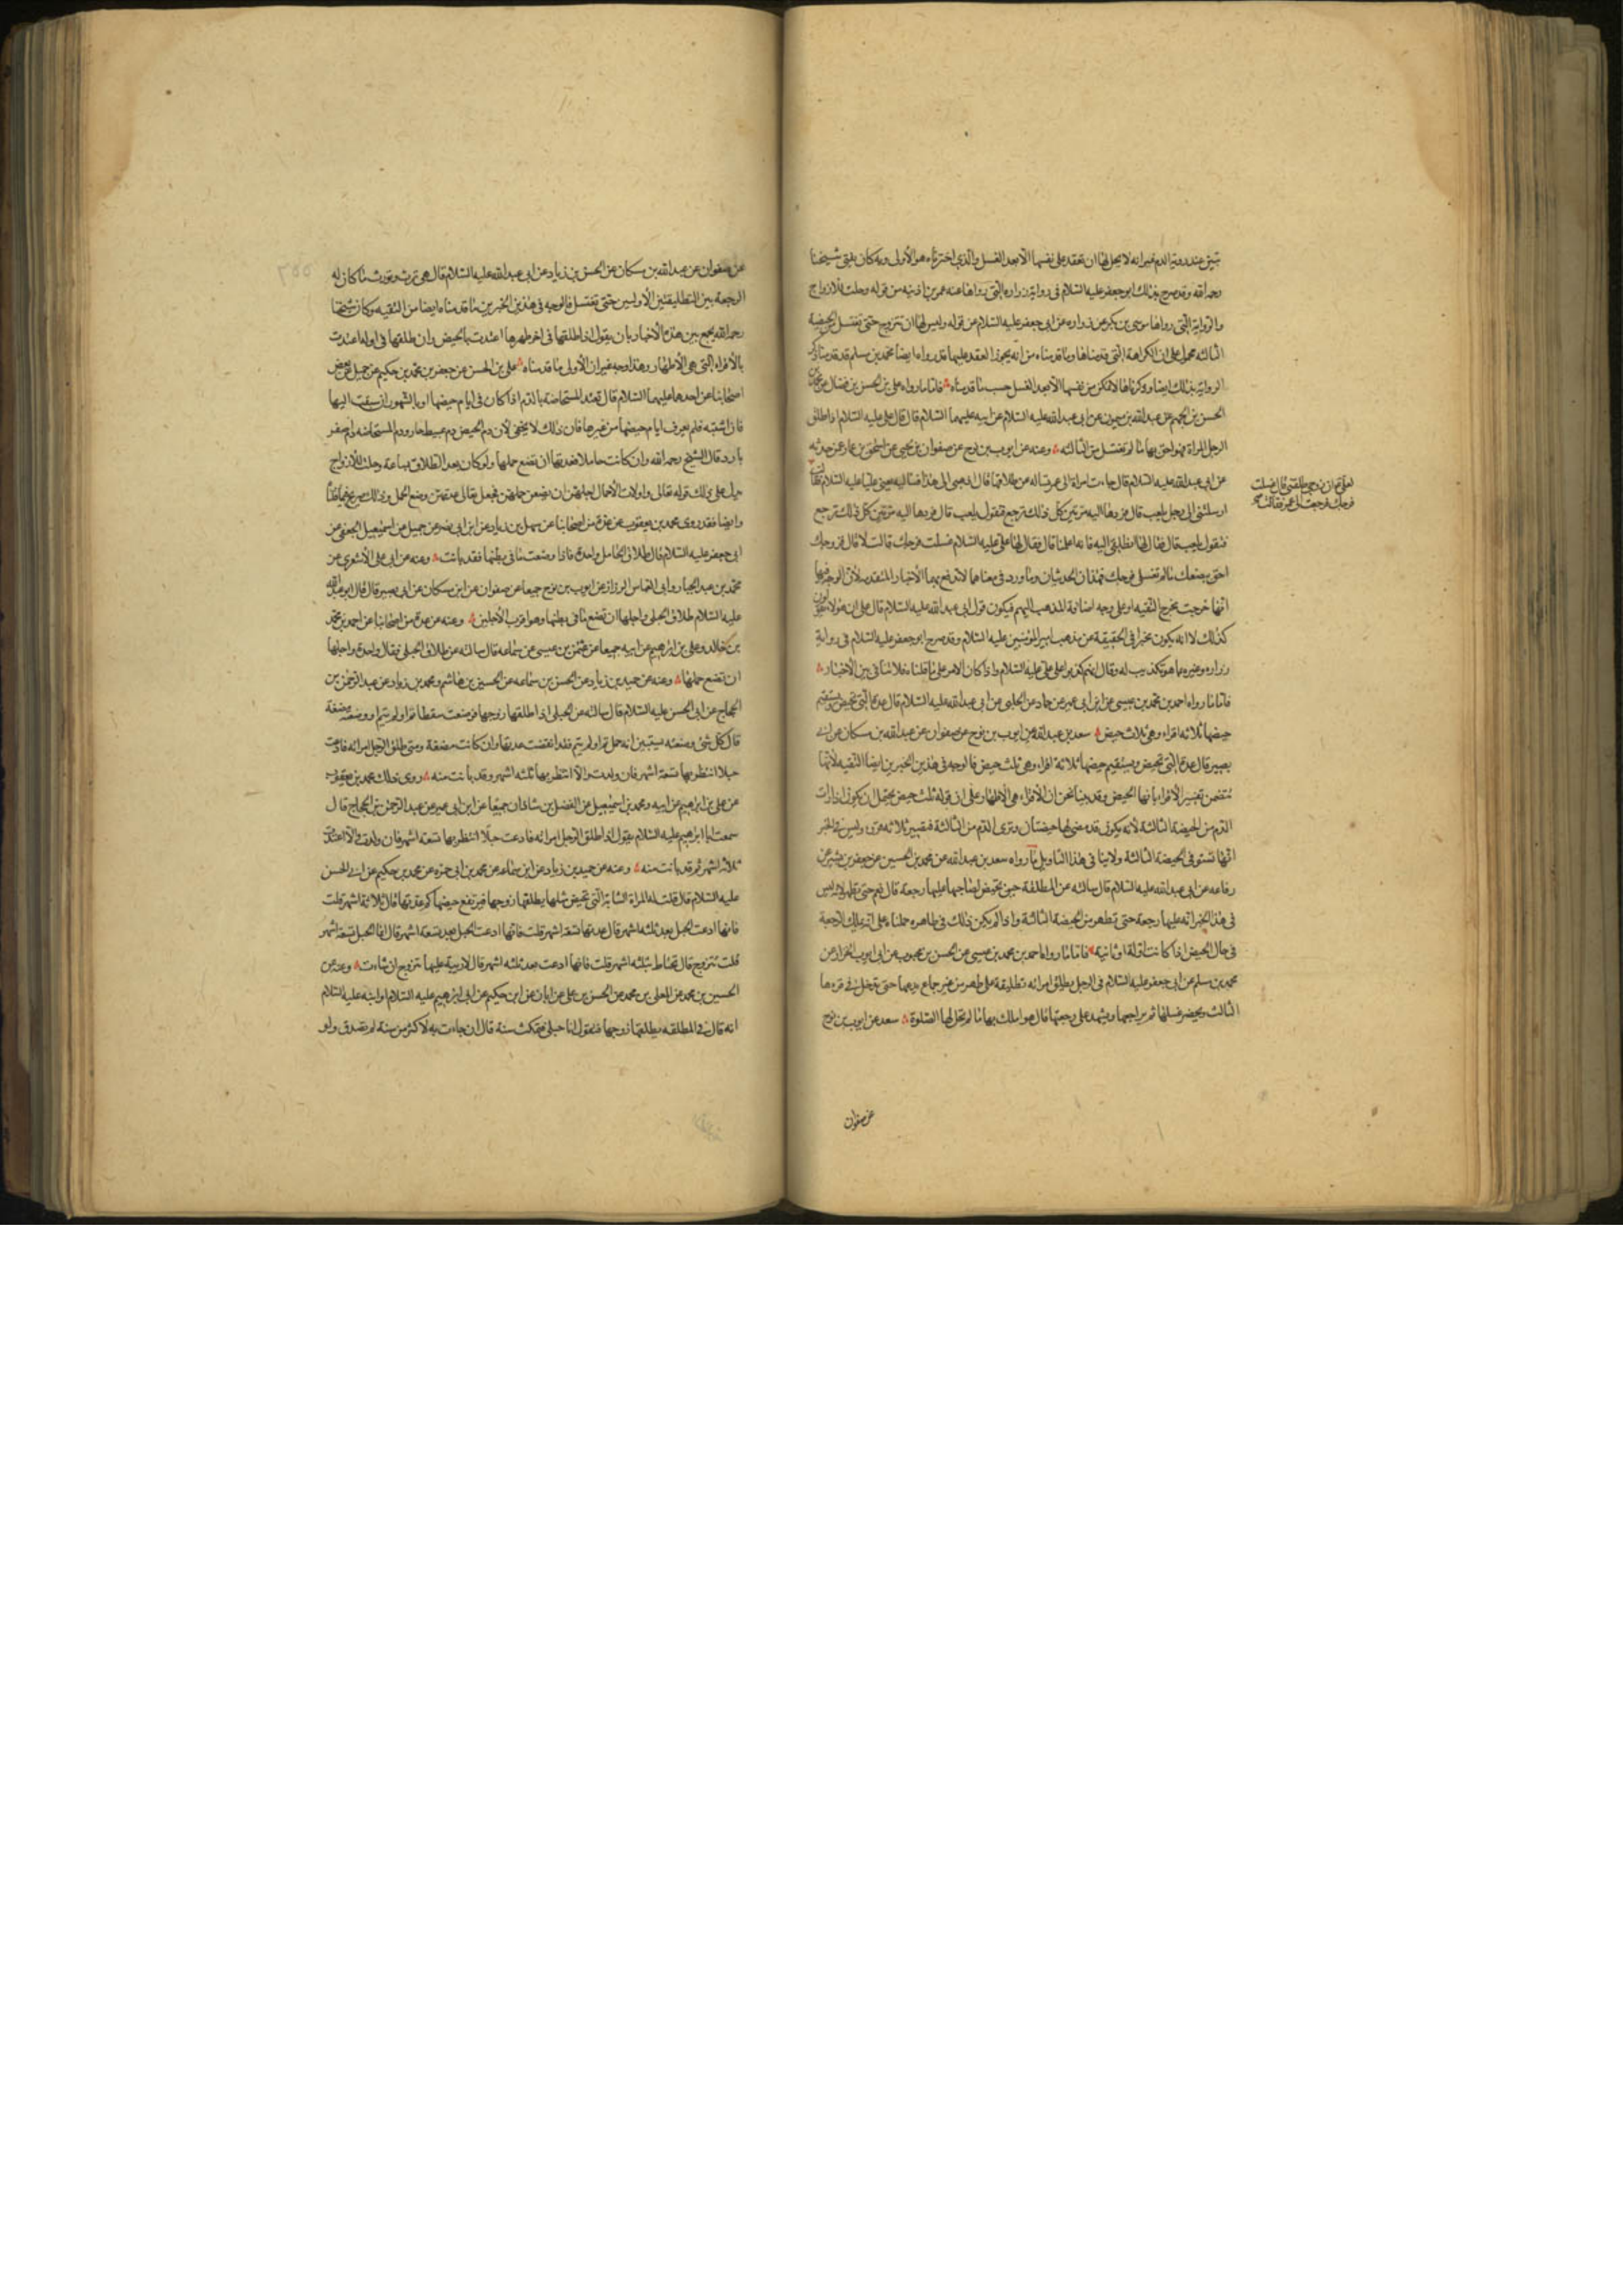 تبين عند رؤية الدم غير انه لا يحل لها ان تعقد على نفسها الا بعد الغسل والذي اخترناه هو الأولى وبه كان يفتي شيخنا
رحمه الله وقد صرح بذلك ابو جعفر عليه السلام في رواية زراره التي رواها عنه عمر بن اذينه من قوله وحلت للازواج
والرواية التي رواها موسى بن بكر عن زراره عن ابي جعفر عليه السلام من قوله وليس لها ان تتزوج حتى تغتسل من الحيضة
الثالثه محمول على ان الكراهة التي قدمناها وما قدمناه من انه يجوز العقد عليها قد رواه ايضا محمد بن مسلم قد قدمنا ذكر
الرواية بذلك ايضا وذكرناها لا تمكن من نفسها الا بعد الغسل حسب ما قدمناه فاما ما رواه علي بن الحسن بن فضال عن محمد بن
الحسن بن الجهم عن عبد الله بن ميمون عن ابي عبد الله عليه السلام عن ابيه عليهما السلام قال قال علي عليه السلام اذا طلق
الرجل المراة فهو احق بها ما لم تغتسل من الثالثه وعنه عن ايوب بن نوح عن صفوان بن يحيى عن اسحق بن عمار عن حدثه
عن ابي عبد الله عليه السلام قال جاءت امراة الى عمر تساله عن طلاقها فقال اذهبي الى هذا فساليه يعني عليا عليه السلام فقالت
لعلي ان زوجي طلقني قال غسلت
فرجك فرجعت الى عمر فقالت
ارسلتني الى رجل يلعب قال فردها اليه مرتين كل ذلك ترجع فتقول يلعب قال فردها اليه مرتين كل ذلك ترجع
فتقول يلعب قال فقال لها انطلقي اليه فانه اعلمنا قال فقال لها علي عليه السلام غسلت فرجك قالت لا قال فزوجك
احق ببضعك ما لم تغتسلي فرجك فهذان الحديثان وما ورد في معناهما لا تدفع بهما الأخبار المتقدمه لأن الوجه فيها
انها خرجت مخرج التقيه او على وجه اضافة المذهب اليهم فيكون قول ابي عبد الله عليه السلام قال علي ان هؤلاء يقولون
كذلك لا انه يكون مخبرا في الحقيقة عن مذهب امير المؤمنين عليه السلام وقد صرح ابو جعفر عليه السلام في رواية
زراره وغيره بما هو تكذيب له وقال انهم كذبوا على علي عليه السلام واذا كان الامر على ما قلناه فلا تنافي بين الأخبار
فاما ما رواه احمد بن محمد بن عيسى عن ابن ابي عمير عن حماد عن الحلبي عن ابي عبد الله عليه السلام قال عدة التي تحيض ويستقيم
حيضها ثلاثه اقراء وهي ثلاث حيض سعد بن عبد الله عن ايوب بن نوح عن صفوان عن عبد الله بن مسكان عن ابي
بصير قال عدة التي تحيض ويستقيم حيضها ثلاثة اقراء وهي ثلث حيض فالوجه في هذين الخبرين ايضا التقيه لأنها
متضمن تفسير الأقراء بانها الحيض وقد بينا نحن ان الأقراء هي الأطهار على ان قوله ثلث حيض يحتمل ان يكون اذا رات
الدم من الحيضة الثالثة لأنه يكون قد مضى لها حيضتان وترى الدم من الثالثة فيصير ثلاثة قروء وليس في الخبر
انها تستوفي الحيضة الثالثة ولا ينافي هذا التاويل ما رواه سعد بن عبد الله عن محمد بن الحسين عن جعفر بن بشير عن
رفاعه عن ابي عبد الله عليه السلام قال سالته عن المطلقة حين تحيض لصاحبها عليها رجعة قال نعم حتى تطهر لانه ليس
في هذا الخبر انه عليها رجعة حتى تطهر من الحيضة الثالثة واذا لم يكن ذلك في ظاهره حملناه على انه يملك الرجعة
في حال الحيض اذا كانت اولة او ثانيه فاما ما رواه احمد بن محمد بن عيسى عن الحسن بن محبوب عن ابي ايوب الخزاز عن
محمد بن مسلم عن ابي جعفر عليه السلام في الرجل يطلق امراته تطليقة على طهر من غير جماع يدعها حتى تدخل في قرءها
الثالث ويحضر غسلها ثم يراجعها ويشهد على رجعتها قال هو املك بها ما لم تحل لها الصلوة سعد عن ايوب بن نوح
عن صفوان
عن صفوان عن عبد الله بن مسكان عن الحسن بن زياد عن ابي عبد الله عليه السلام قال هي ترث وتورث ما كان له
الرجعة بين التطليقتين الأوليين حتى تغتسل فالوجه في هذين الخبرين ما قدمناه ايضا من التقيه وكان شيخنا
رحمه الله يجمع بين هذه الأخبار بان يقول اذا طلقها في اخر طهرها اعتدت بالحيض وان طلقها في اوله اعتدت
بالأقراء التي هي الأطهار وهذا وجه غير ان الأولى ما قدمناه علي بن الحسن عن جعفر بن محمد بن حكيم عن جميل عن بعض
اصحابنا عن احدهما عليهما السلام قال تعتد المستحاضة بالدم اذا كان في ايام حيضها او بالشهور ان سبقت اليها
فان اشتبه فلم يعرف ايام حيضها من غيرها فان ذلك لا يخفى لأن دم الحيض دم عبيط حار ودم المستحاضه دم اصفر
بارد قال الشيخ رحمه الله وان كانت حاملا فعدتها ان تضع حملها ولو كان بعد الطلاق بساعة وحلت للأزواج
يدل على ذلك قوله تعالى واولات الأحمال اجلهن ان يضعن حملهن فجعل تعالى عدتهن وضع الحمل وذلك صريح فيما قلنا
وايضا فقد روى محمد بن يعقوب عن عدة من اصحابنا عن سهل بن زياد عن ابن ابي نصر عن جميل عن اسمعيل الجعفي عن
ابي جعفر عليه السلام قال طلاق الحامل واحدة فاذا وضعت ما في بطنها فقد بانت وعنه عن ابي علي الأشعري عن
محمد بن عبد الجبار وابي العباس الرزاز عن ايوب بن نوح جميعا عن صفوان عن ابن مسكان عن ابي بصير قال قال ابو عبد الله
عليه السلام طلاق الحبلى واجلها ان تضع ما في بطنها وهو اقرب الأجلين وعنه عن عدة من اصحابنا عن احمد بن محمد
بن خالد وعلي بن ابراهيم عن ابيه جميعا عن عثمن بن عيسى عن سماعه قال سالته عن طلاق الحبلى فقال واحدة واجلها
ان تضع حملها وعنه عن حميد بن زياد عن الحسن بن سماعه عن الحسين بن هاشم ومحمد بن زياد عن عبد الرحمن بن
الحجاج عن ابي الحسن عليه السلام قال سالته عن الحبلى اذا طلقها زوجها فوضعت سقطا تم او لم يتم او وضعته مضغة
قال كل شئ وضعته يستبين انه حمل تم او لم يتم فقد انقضت عدتها وان كانت مضغة ومتى طلق الرجل امراته فادعت
حبلا انتظر بها تسعة اشهر فان ولدت والا انتظر بها ثلثه اشهر وقد بانت منه روى ذلك محمد بن يعقوب
عن علي بن ابراهيم عن ابيه ومحمد بن اسمعيل عن الفضل بن شاذان جميعا عن ابن ابي عمير عن عبد الرحمن بن الحجاج قال
سمعت ابا ابراهيم عليه السلام يقول اذا طلق الرجل امراته فادعت حبلا انتظر بها تسعة اشهر فان ولدت والا اعتدت
ثلاثه اشهر ثم قد بانت منه وعنه عن حميد بن زياد عن ابن سماعه عن محمد بن ابي حمزه عن محمد بن حكيم عن ابي الحسن
عليه السلام قال قلت له المراة الشابة التي تحيض مثلها يطلقها زوجها فيرتفع حيضها كم عدتها قال ثلاثة اشهر قلت
فانها ادعت الحبل بعد ثلثه اشهر قال عدتها تسعة اشهر قلت فانها ادعت الحبل بعد تسعة اشهر قال انما الحبل تسعة اشهر
قلت تتزوج قال تحتاط بثلثه اشهر قلت فانها ادعت بعد ثلثه اشهر قال لا ريبة عليها تتزوج ان شاءت وعنه عن
الحسين بن محمد عن المعلى بن محمد عن الحسن بن علي عن ابان عن ابن حكيم عن ابي ابراهيم عليه السلام او ابنه عليه السلام
انه قال في المطلقه يطلقها زوجها فتقول انا حبلى فتمكث سنة قال ان جاءت به لأكثر من سنة لم تصدق ولو